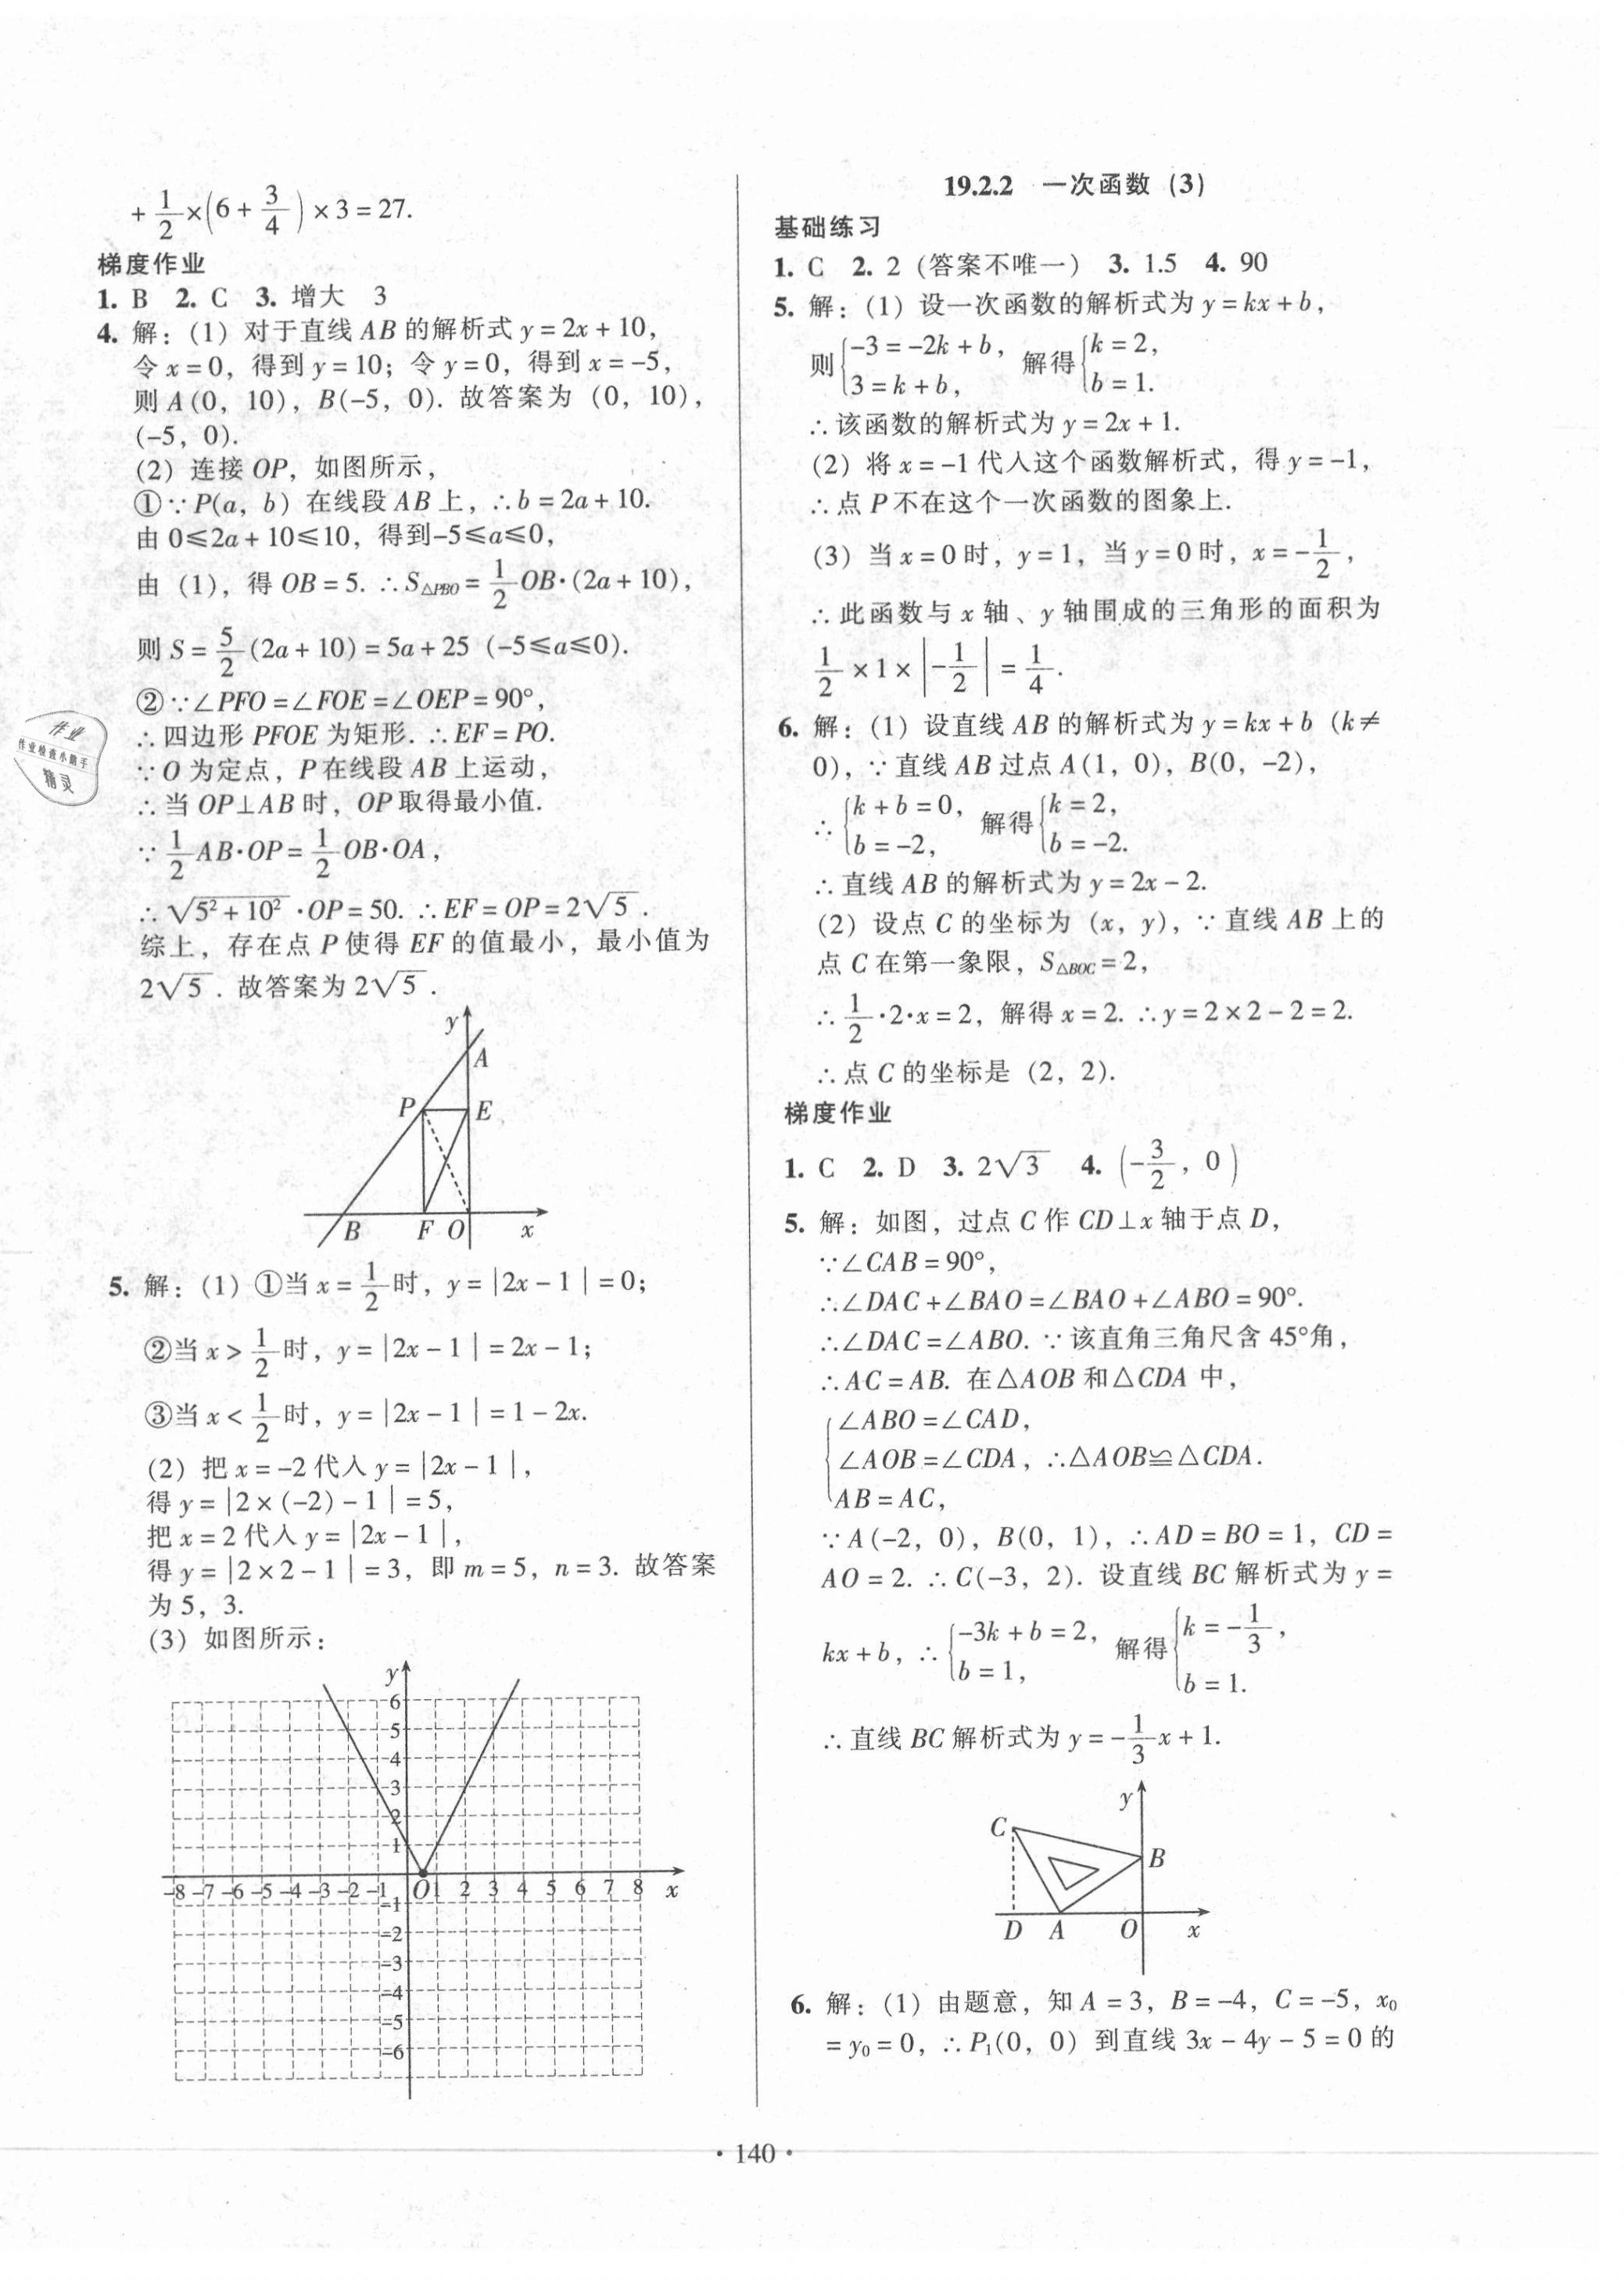 +1/2×(6+3/4)×3=27.
梯度作业
1. B 2. C 3. 增大 3
4. 解：(1) 对于直线 AB 的解析式 y=2x+10，
令 x=0，得到 y=10；令 y=0，得到 x=-5，
则 A(0，10)，B(-5，0). 故答案为 (0，10)，
(-5，0).
(2) 连接 OP，如图所示，
①∵P(a，b) 在线段 AB 上，∴b=2a+10.
由 0≤2a+10≤10，得到-5≤a≤0，
由 (1)，得 OB=5. ∴S△PBO=1/2OB·(2a+10)，
则 S=5/2(2a+10)=5a+25 (-5≤a≤0).
②∵∠PFO=∠FOE=∠OEP=90°，
∴四边形 PFOE 为矩形. ∴EF=PO.
∵O 为定点，P 在线段 AB 上运动，
∴当 OP⊥AB 时，OP 取得最小值.
∵1/2AB·OP=1/2OB·OA，
∴√(5²+10²)·OP=50. ∴EF=OP=2√5.
综上，存在点 P 使得 EF 的值最小，最小值为
2√5. 故答案为 2√5.
y
A
P E
B F O x
5. 解：(1) ①当 x=1/2时，y=|2x-1|=0；
②当 x>1/2时，y=|2x-1|=2x-1；
③当 x<1/2时，y=|2x-1|=1-2x.
(2) 把 x=-2 代入 y=|2x-1|，
得 y=|2×(-2)-1|=5，
把 x=2 代入 y=|2x-1|，
得 y=|2×2-1|=3，即 m=5，n=3. 故答案
为 5，3.
(3) 如图所示：
y
6
5
4
3
2
1
-8 -7 -6 -5 -4 -3 -2 -1 O 1 2 3 4 5 6 7 8 x
-1
-2
-3
-4
-5
-6
作业
作业检查小助手
精灵
19.2.2 一次函数 (3)
基础练习
1. C 2. 2 (答案不唯一) 3. 1.5 4. 90
5. 解：(1) 设一次函数的解析式为 y=kx+b，
则{-3=-2k+b，3=k+b，解得{k=2，b=1.
∴该函数的解析式为 y=2x+1.
(2) 将 x=-1 代入这个函数解析式，得 y=-1，
∴点 P 不在这个一次函数的图象上.
(3) 当 x=0 时，y=1，当 y=0 时，x=-1/2，
∴此函数与 x 轴、y 轴围成的三角形的面积为
1/2×1×|-1/2|=1/4.
6. 解：(1) 设直线 AB 的解析式为 y=kx+b (k≠
0)，∵直线 AB 过点 A(1，0)，B(0，-2)，
∴{k+b=0，b=-2，解得{k=2，b=-2.
∴直线 AB 的解析式为 y=2x-2.
(2) 设点 C 的坐标为 (x，y)，∵直线 AB 上的
点 C 在第一象限，S△BOC=2，
∴1/2·2·x=2，解得 x=2. ∴y=2×2-2=2.
∴点 C 的坐标是 (2，2).
梯度作业
1. C 2. D 3. 2√3 4. (-3/2，0)
5. 解：如图，过点 C 作 CD⊥x 轴于点 D，
∵∠CAB=90°，
∴∠DAC+∠BAO=∠BAO+∠ABO=90°.
∴∠DAC=∠ABO. ∵该直角三角尺含 45°角，
∴AC=AB. 在△AOB 和△CDA 中，
∠ABO=∠CAD，
∠AOB=∠CDA，∴△AOB≌△CDA.
AB=AC，
∵A(-2，0)，B(0，1)，∴AD=BO=1，CD=
AO=2. ∴C(-3，2). 设直线 BC 解析式为 y=
kx+b，∴{-3k+b=2，b=1，解得{k=-1/3，b=1.
∴直线 BC 解析式为 y=-1/3x+1.
y
C
B
D A O x
6. 解：(1) 由题意，知 A=3，B=-4，C=-5，x₀
=y₀=0，∴P₁(0，0) 到直线 3x-4y-5=0 的
·140·